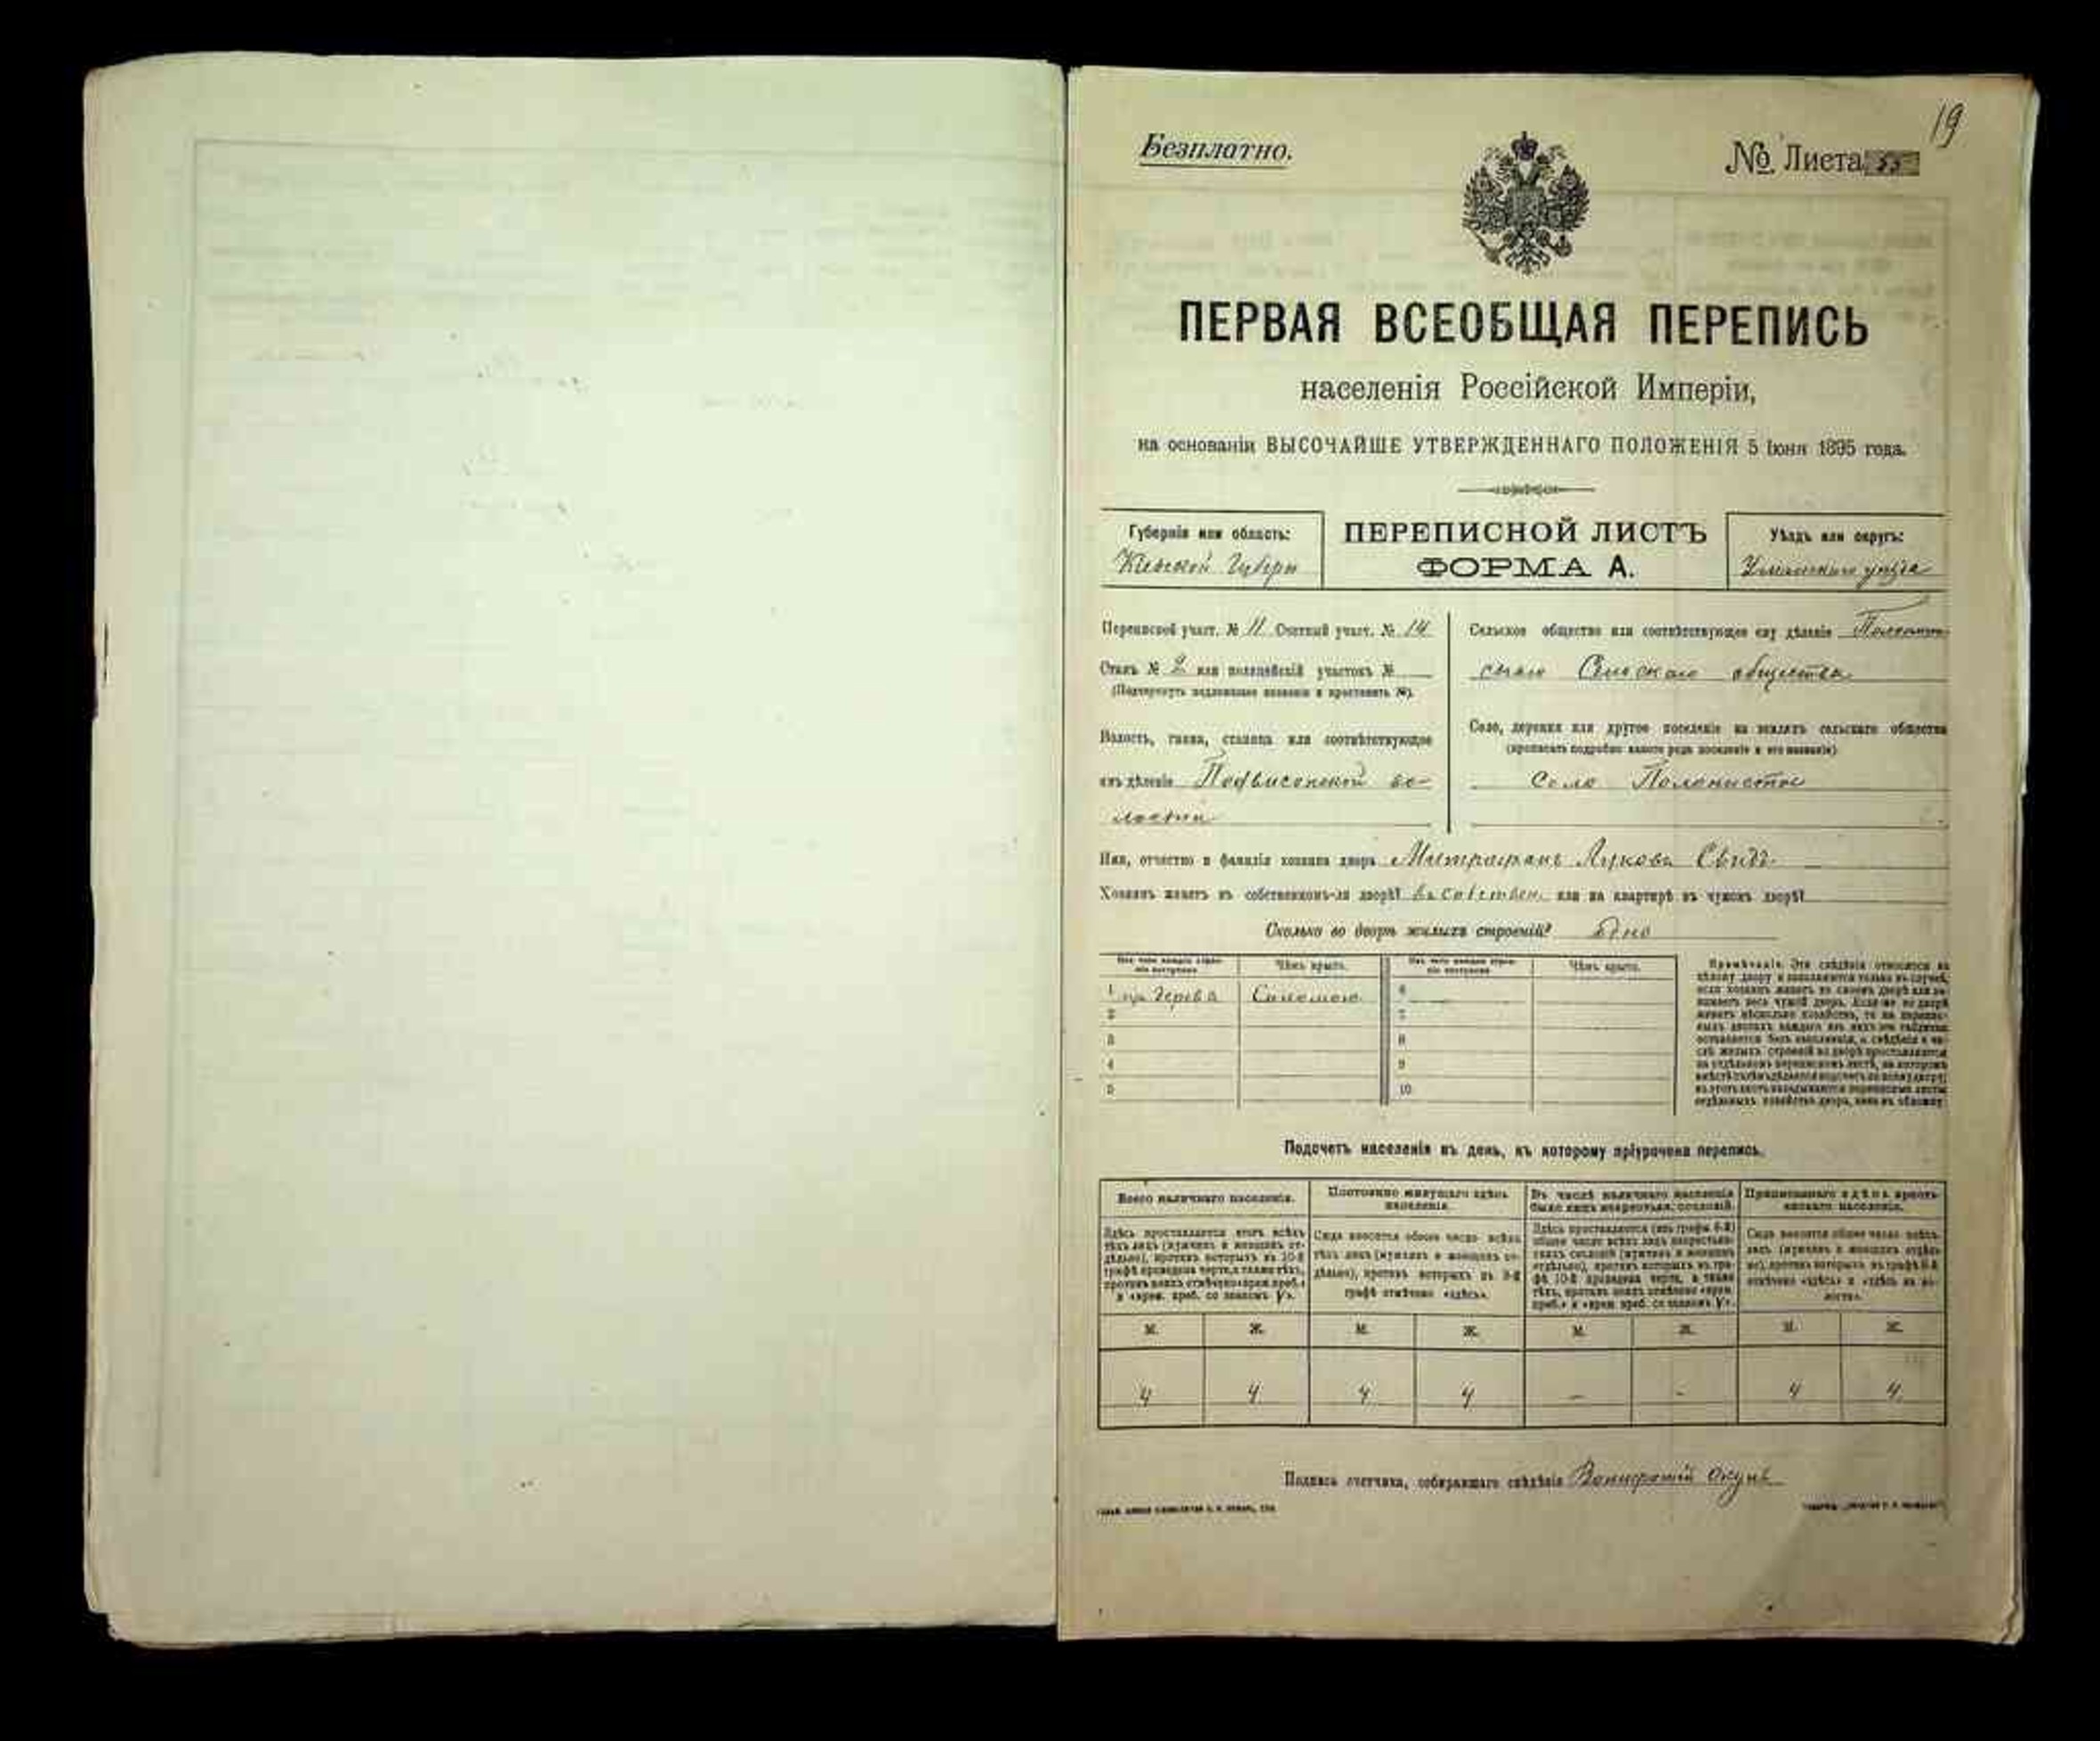 19
Безплатно.
№ Листа 55
ПЕРВАЯ ВСЕОБЩАЯ ПЕРЕПИСЬ
населенія Россійской Имперіи,
на основаніи ВЫСОЧАЙШЕ УТВЕРЖДЕННАГО ПОЛОЖЕНІЯ 5 Іюня 1895 года.
Губернія или область:
Кіевской Губерн
ПЕРЕПИСНОЙ ЛИСТЪ
ФОРМА А.
Уѣздъ или округъ:
Уманскаго уѣзда
Переписной участ. № 11 Счетный участ. № 14
Станъ № 2 или полицейскій участокъ №
(Подчеркнуть надлежащее названіе и проставить №).
Волость, гмина, станица или соотвѣтствующее
имъ дѣленіе Подвисоцкой во-
лости
Сельское общество или соотвѣтствующее ему дѣленіе
скаго Сельскаго общества
Село, деревня или другое поселеніе на земляхъ сельскаго общества
(прописать подробно какого рода поселеніе и его названіе)
Село Полонистое
Имя, отчество и фамилія хозяина двора Митрофанъ Луковъ Свидъ
Хозяинъ живетъ въ собственномъ-ли дворѣ? въ собствен. или на квартирѣ въ чужомъ дворѣ?
Сколько во дворѣ жилыхъ строеній? одно
Изъ чего каждое строеніе построено
Чѣмъ крыто.
Изъ чего каждое строеніе построено
Чѣмъ крыто.
1 изъ дерева Соломою 6
2 7
3 8
4 9
5 10
Примѣчаніе. Эти свѣдѣнія относятся къ
цѣлому двору и заполняются только въ случаѣ,
если хозяинъ живетъ въ своемъ дворѣ или за-
нимаетъ весь чужой дворъ. Если-же во дворѣ
живетъ нѣсколько хозяйствъ, то на перепис-
ныхъ листахъ каждаго изъ нихъ эта табличка
оставляется безъ заполненія, а свѣдѣнія о чи-
слѣ жилыхъ строеній во дворѣ проставляются
на отдѣльномъ переписномъ листѣ, на которомъ
Подсчетъ населенія въ день, къ которому пріурочена перепись.
Всего наличнаго населенія.
Здѣсь проставляется итогъ всѣхъ
тѣхъ лицъ (мужчинъ и женщинъ от-
дѣльно), противъ которыхъ въ 10-й
графѣ проведена черта, а также тѣхъ,
противъ коихъ отмѣчено «врем. преб.»
и «врем. преб. со знакомъ V».
Постоянно живущаго здѣсь
населенія.
Сюда вносится общее число всѣхъ
тѣхъ лицъ (мужчинъ и женщинъ от-
дѣльно), противъ которыхъ въ 9-й
графѣ отмѣчено «здѣсь».
Въ числѣ наличнаго населенія
было лицъ некрестьян. сословій.
Здѣсь проставляется (изъ графы 6-й)
общее число всѣхъ лицъ некрестьян-
скихъ сословій (мужчинъ и женщинъ
отдѣльно), противъ которыхъ въ гра-
фѣ 10-й проведена черта, а также
тѣхъ, противъ коихъ отмѣчено «врем.
преб.» и «врем. преб. со знакомъ V».
Приписаннаго здѣсь кресть-
янскаго населенія.
Сюда вносится общее число всѣхъ
лицъ (мужчинъ и женщинъ отдѣль-
но), противъ которыхъ въ графѣ 8-й
отмѣчено «здѣсь» и «здѣсь въ во-
лости».
М. Ж. М. Ж. М. Ж. М. Ж.
4 4 4 4 – – 4 4
Подпись счетчика, собиравшаго свѣдѣнія Вонифатій Окунь